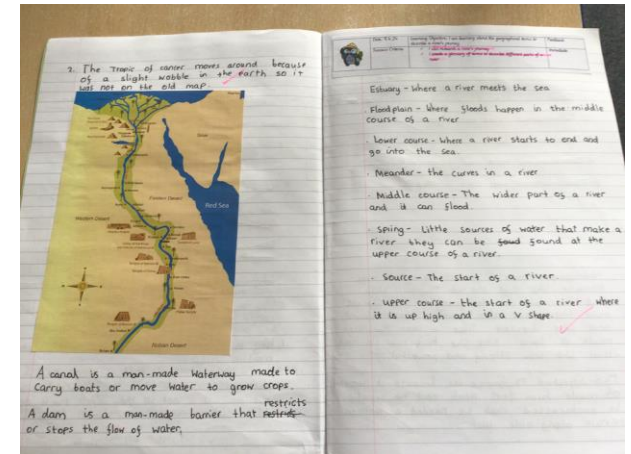 2. The Tropic of cancer moves around because
of a slight wobble in the earth so it
was not on the old map.
Red Sea
Eastern Desert
Western Desert
Nubian Desert
Sinai
A canal is a man-made waterway made to
carry boats or move water to grow crops.
restricts
A dam is a man-made barrier that restricts
or stops the flow of water.
Estuary - Where a river meets the sea
Floodplain - Where floods happen in the middle
course of a river
· Lower course - Where a river starts to end and
go into the sea.
· Meander - the curves in a river
· Middle course - The wider part of a river
and it can flood.
· Spring - Little sources of water that make a
river they can be found at the
upper course of a river.
· Source - The start of a river.
· Upper course - the start of a river where
it is up high and in a V shape.